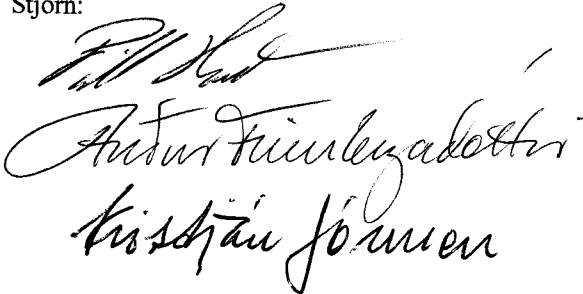 Stjórn:
Páll
Auður Finnbogadóttir
Kristján Jónsson